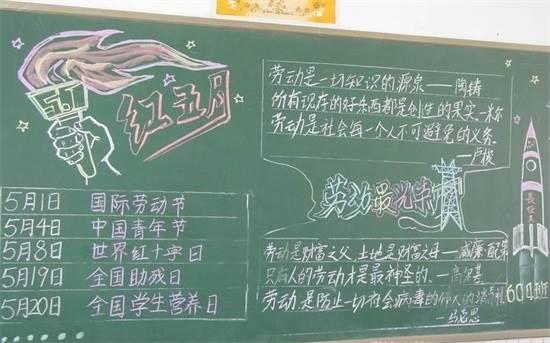 51
红五月
5月1日 国际劳动节
5月4日 中国青年节
5月8日 世界红十字日
5月19日 全国助残日
5月20日 全国学生营养日
劳动是一切知识的源泉——陶铸
所有现存的好东西都是创造的果实—米尔
劳动是社会每一个人不可避免的义务
——卢梭
劳动最光荣
劳动是财富之父,土地是财富之母——威廉·配第
只有人的劳动才是最神圣的.——高尔基
劳动是防止一切社会病毒的伟人的消毒
——马克思
长征
60年